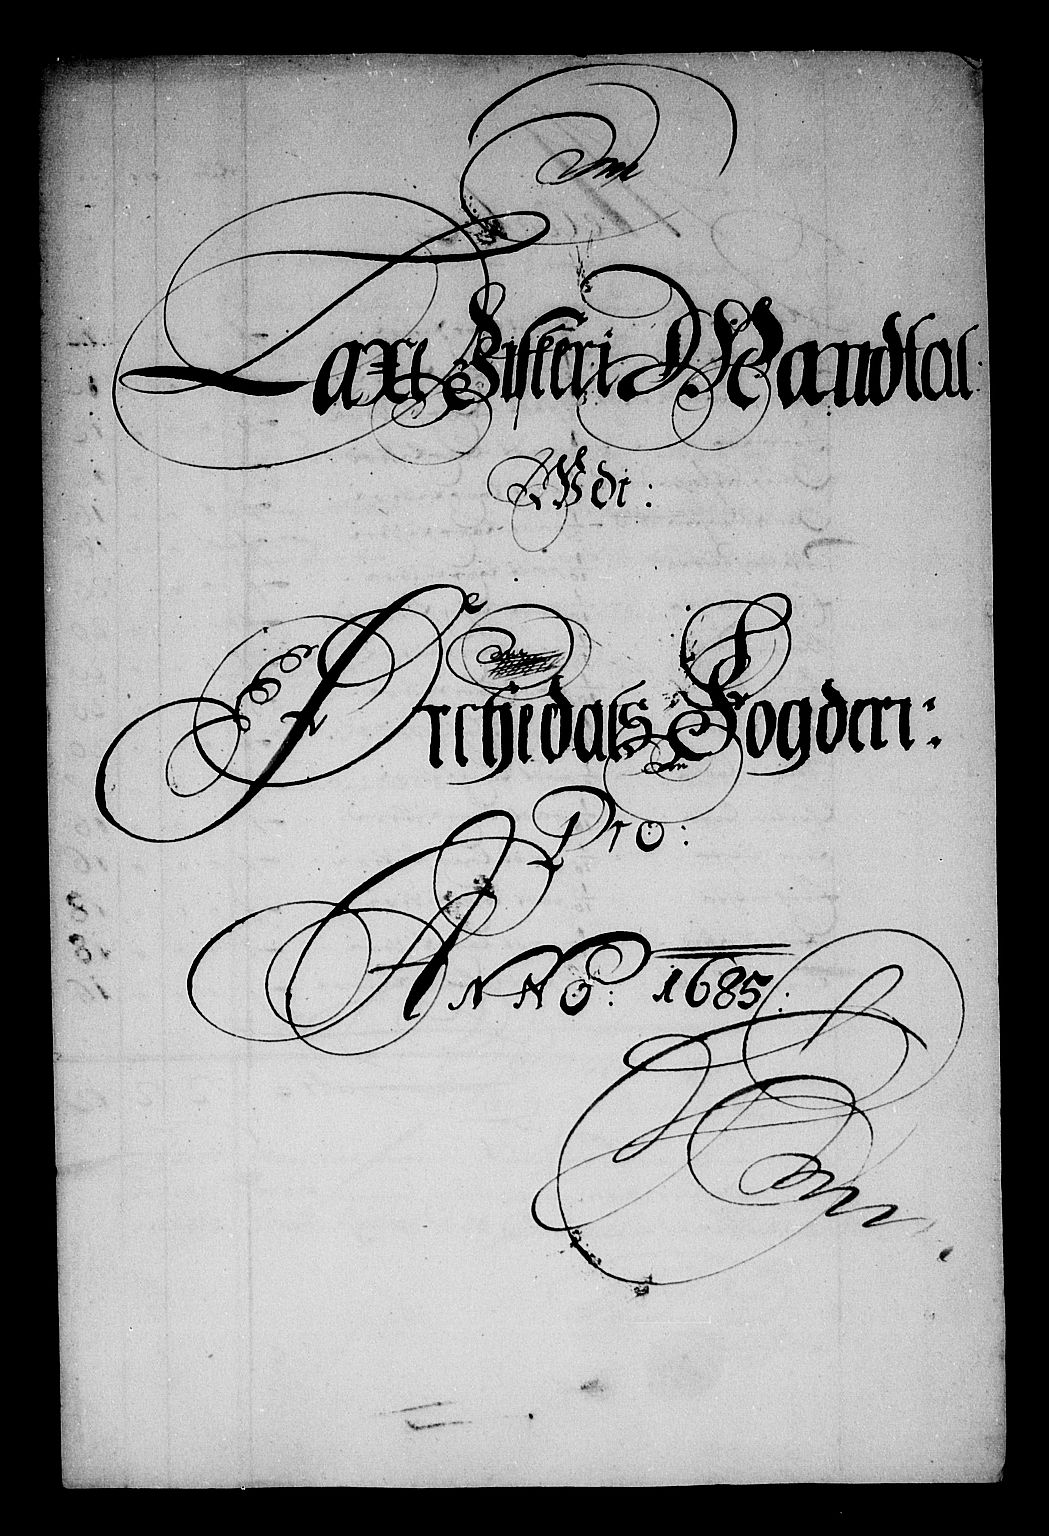 Laxe Fiskeri Mandtal
Udi:
Orchedals Fogderi:
Pro:
ANNO: 1685: